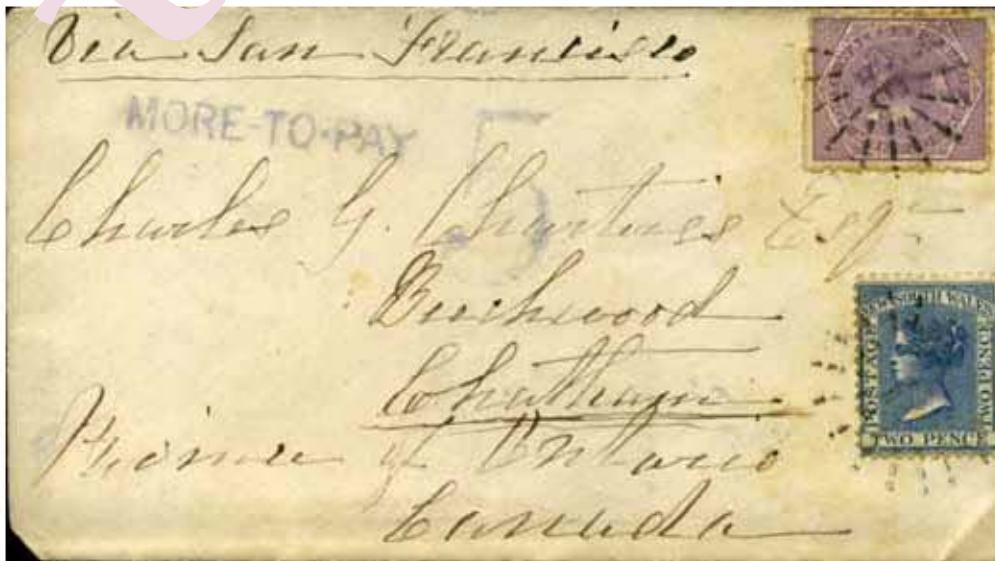 Via San Francisco
MORE-TO-PAY 5
Charles G. Charteris Esqr
Beechwood
Chatham
Province of Ontario
Canada
NEW SOUTH WALES
POSTAGE
TWO PENCE
TWO PENCE